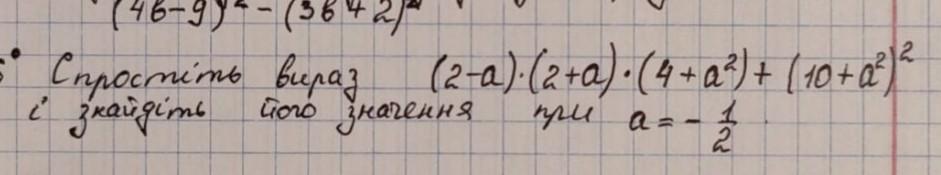 (4b-9)² - (3b+2)²
5° Спростіть вираз (2-a)·(2+a)·(4+a²)+(10+a²)²
і знайдіть його значення при a = - 1/2